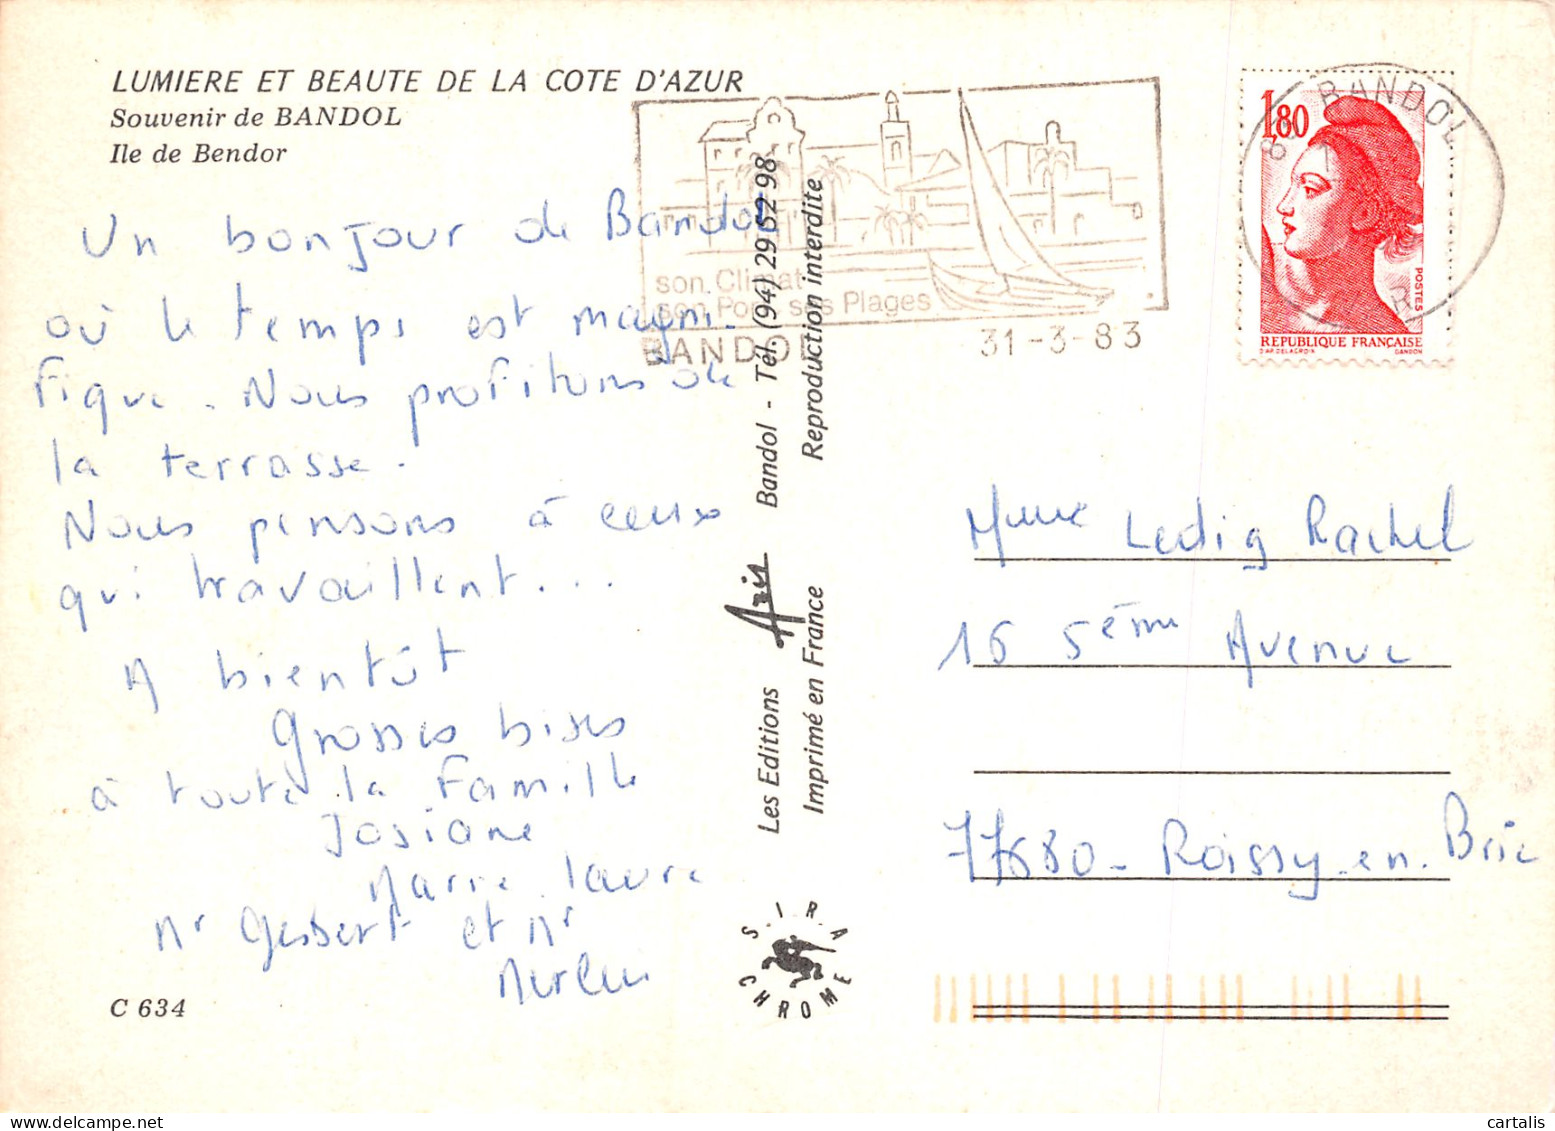 LUMIERE ET BEAUTE DE LA COTE D'AZUR
Souvenir de BANDOL
Ile de Bendor
Un bonjour de Bandol
où le temps est magni-
fique. Nous profitons de
la terrasse.
Nous pensons à ceux
qui travaillent...
A bientôt
Grosses bises
à toute la famille
Josiane
Marie Laure
Mr Gesbert et Mr
C 634
son Climat
son Port ses Plages
BANDOL
31-3-83
BANDOL
1,80
POSTES
REPUBLIQUE FRANÇAISE
D'AP. DELACROIX GANDON
Les Editions Aris Bandol - Tél. (94) 29 52 98
Imprimé en France Reproduction interdite
S.I.R.A
CHROME
Ledig Rachel
16 5ème Avenue
77680 - Roissy-en-Brie
cartalis